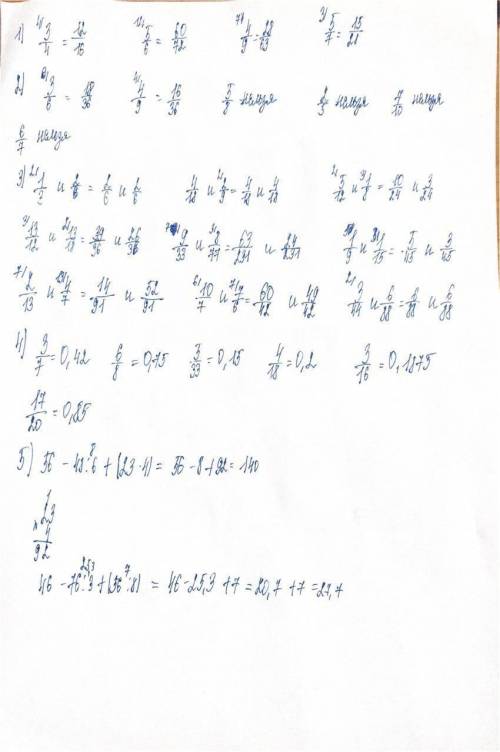 1) 3/4 = 12/16 5/6 = 60/72 4/9 = 28/63 5/7 = 15/21
2) 3/6 = 18/36 4/9 = 16/36 5/8 нельзя 2/3 нельзя 7/10 нельзя
6/7 нельзя
3) 1/3 и 2/6 = 2/6 и 2/6 4/18 и 2/9 = 4/18 и 4/18 5/12 и 1/8 = 10/24 и 3/24
13/12 и 13/18 = 39/36 и 26/36 9/33 и 8/77 = 63/231 и 24/231 1/9 и 1/15 = 5/45 и 3/45
2/13 и 4/7 = 14/91 и 52/91 10/7 и 7/6 = 60/42 и 49/42 3/44 и 6/88 = 6/88 и 6/88
4) 3/7 = 0,42 6/8 = 0,75 5/33 = 0,15 4/18 = 0,2 3/16 = 0,1875
17/20 = 0,85
5) 56 - 48:6 + (23·4) = 56 - 8 + 92 = 140
1
× 23
4
92
46 - 76:3 + (56:8) = 46 - 25,3 + 7 = 20,7 + 7 = 27,7